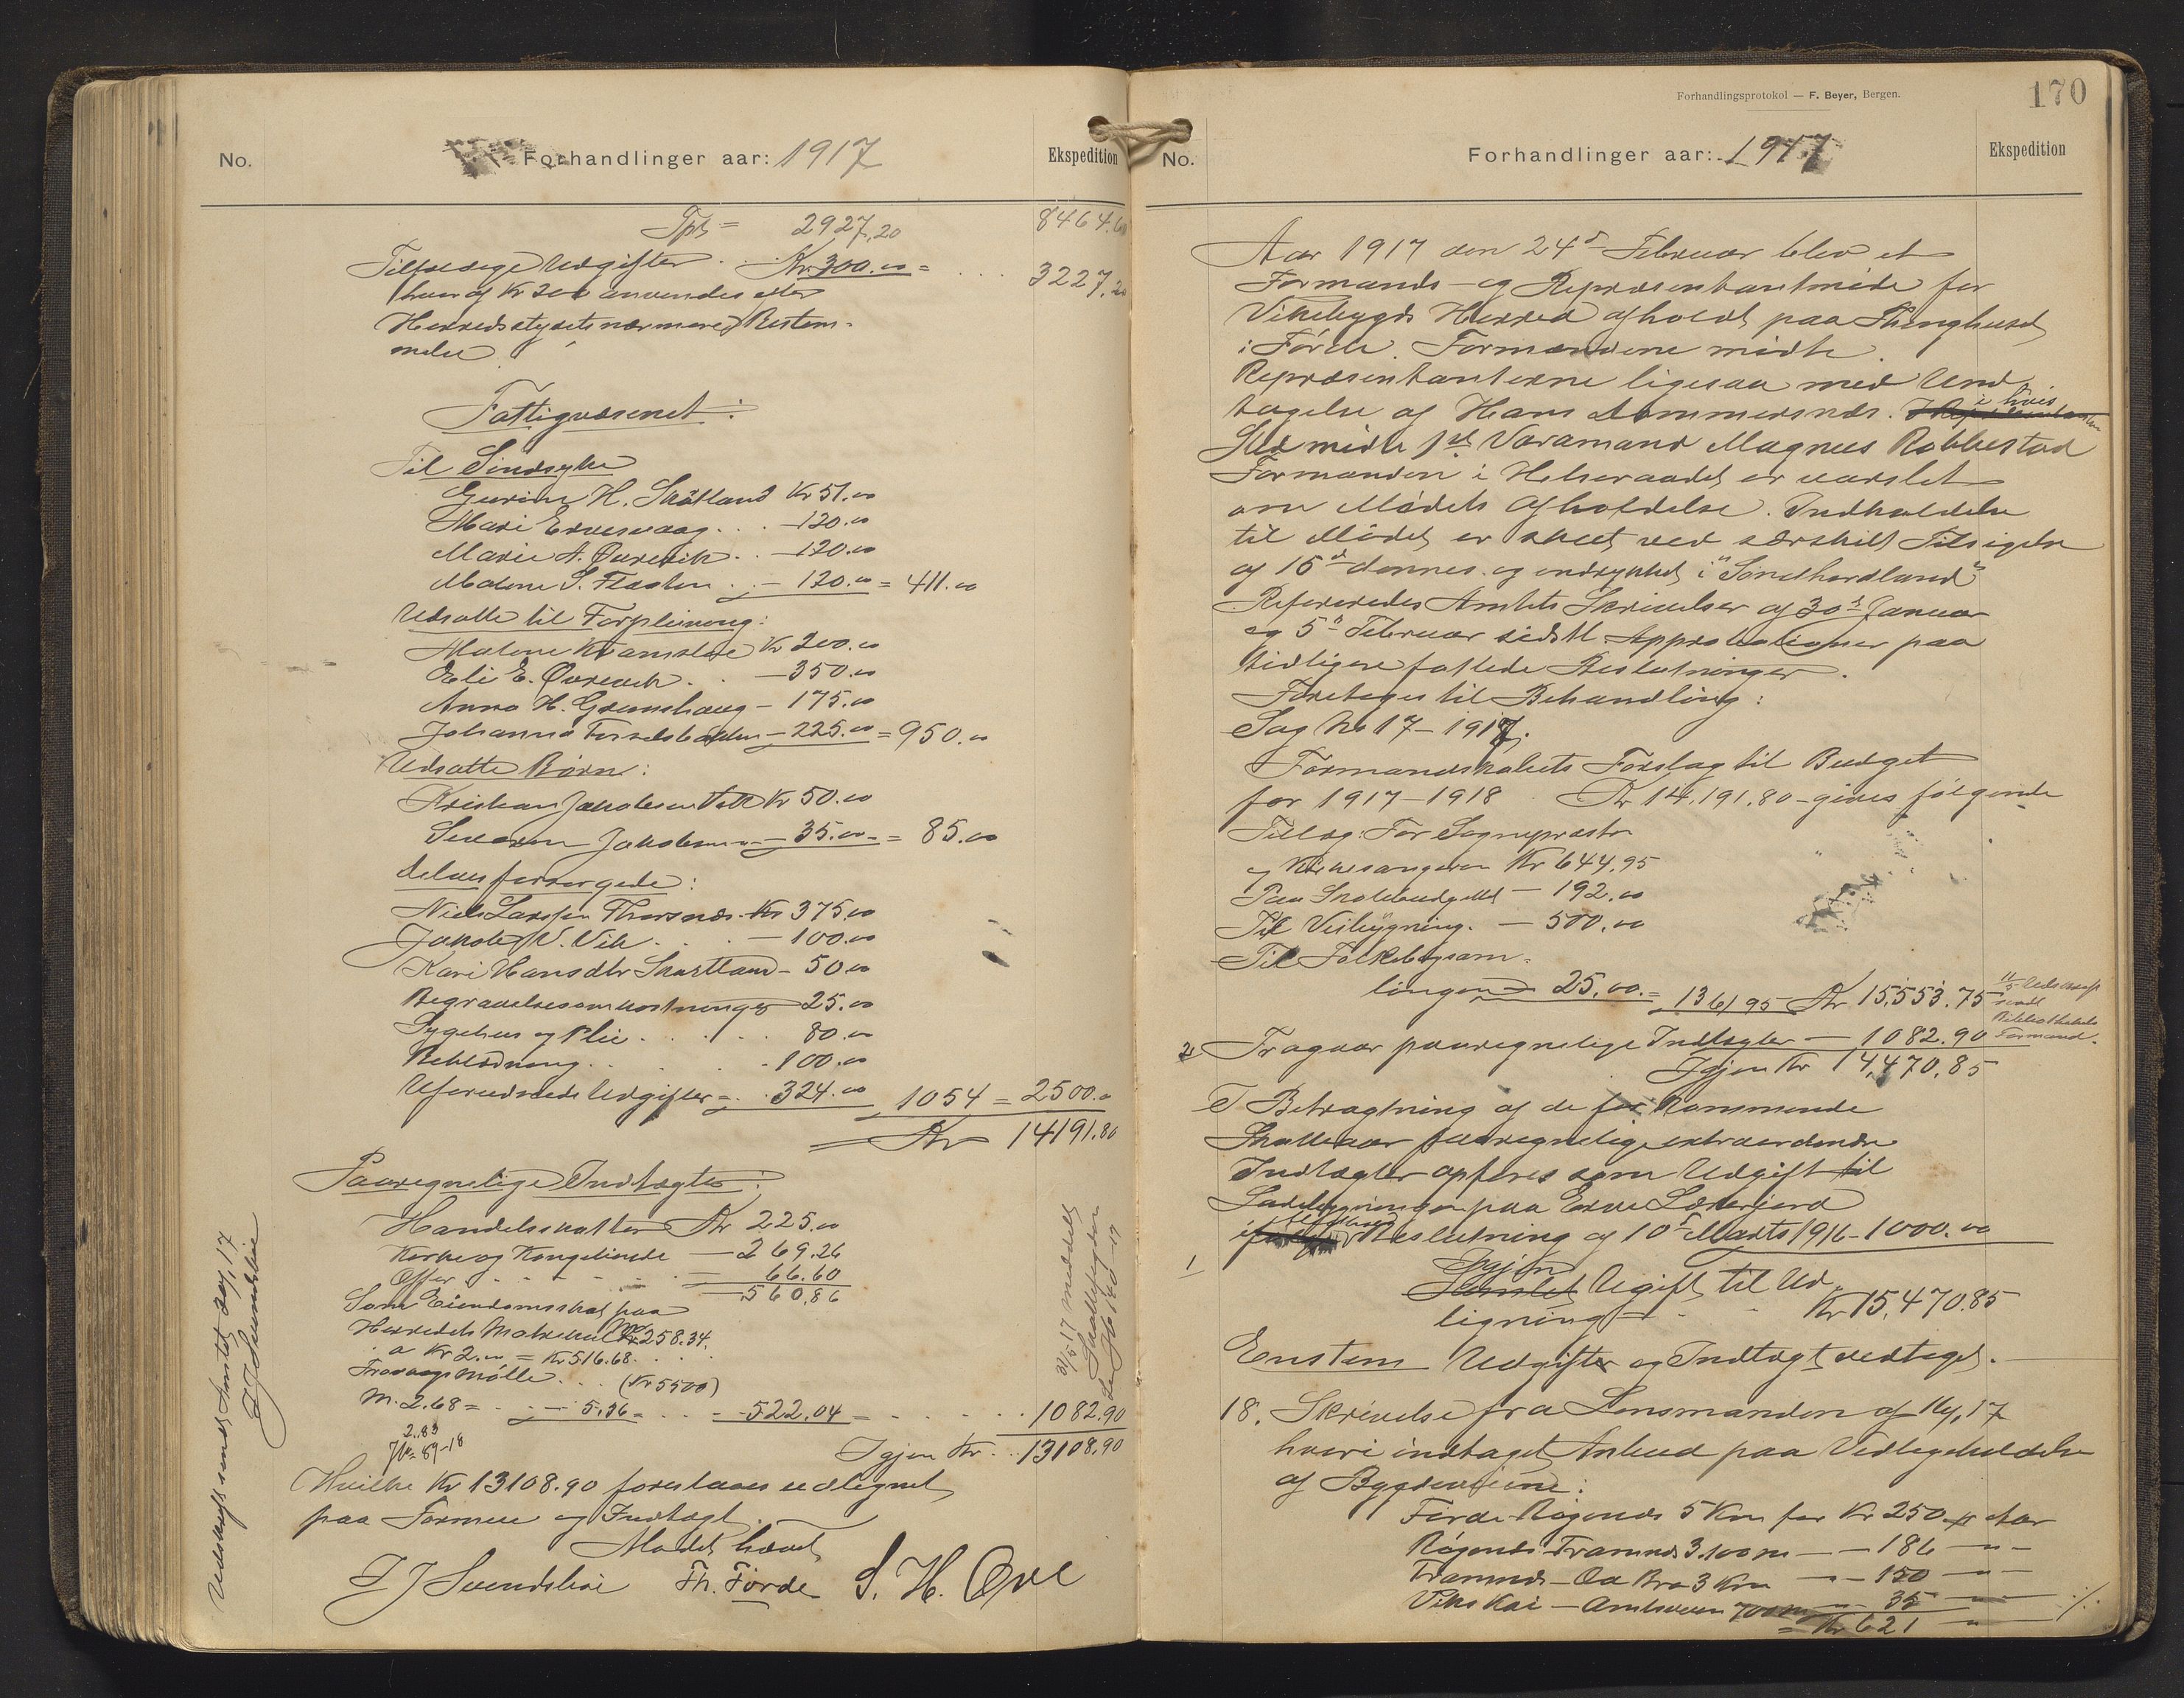 No.
Forhandlinger aar: 1917
Ekspedition
Tpt = 2927.20 8464.60
Tilfældige Udgifter . . Kr 300.00 = . . . 3227.20
hvoraf Kr 200 anvendes efter
Herredsstyrets nærmere Bestem-
melse
Fattigvæsenet:
Til Sindsyke
H. Skåtland Kr 51.00
Mari Ervesvaag . . . — 120.00
Marie A. Øvrevik . . — 120.00
Malene S. Flaaten . . — 120.00 = 411.00
Udsatte til Forpleining:
Malene Kr 200.00
Eli E. Øvrevik . . — 350.00
Anna H. Grimshaug — 175.00
Johanna — 225.00 = 950.00
Udsatte Børn:
Kristian Jakobsen Kr 50.00
Jakobsen — 35.00 = 85.00
Delvis forsørgede:
Niels Larssen Thorsnæs Kr 375.00
Jakob V. Vik . . . — 100.00
Kari Hansdtr — 50.00
Begravelsesomkostninger 25.00
Sygehus og Pleie . . . . 80.00
. . . . . 100.00
Uforudseede Udgifter = . . 324.00 1054 = 2500.00
= Kr 14191.80
Paaregnelige Indtægter:
Handelsskatter Kr 225.00
Kirke og Kongetiende — 269.26
Offer . . . . . — 66.60
560.86
Som Eiendomsskat paa
Herredets Matrikul 258.34.
a Kr 2.00 = Kr 516.68 . . .
Mølle . . . (Kr 5500)
M. 2.68 = . . — 5.36 = . . . 522.04 = . . . . . . 1082.90
2.83
89-18
Igjen Kr . . 13108.90
Hvilke Kr 13108.90 foreslaaes udlignet
paa Formue og Indtægt.
Mødet hævet
J J Svendsbøe Th. Førde S. H. Øvre
Udskrift sendt Amtet 17
J J Svendsbøe
17 meddelt
Forhandlingsprotokol — F. Beyer, Bergen.
170
No.
Forhandlinger aar: 1917
Ekspedition
Aar 1917 den 24de Februar blev et
Formands- og Repræsentantmøde for
Vikebygd Herred afholdt paa Thinghuset
i Førde. Formændene mødte.
Repræsentanterne ligesaa med Und
tagelse af Hans Dommersnæs. i hvis
Sted mødte 1ste Varamand Magnus Robbestad
Formanden i Helseraadet er varslet
om Mødets Afholdelse. Indkaldelse
til Mødet er skeet ved særskilt Tilsigelse
af 15de dennes og indrykket i "Søndhordland"
Refereredes Amtets Skrivelser af 30te Januar
og 5te Februar sidstl. Approbationer paa
tidligere fattede Beslutninger.
Foretoges til Behandling:
Sag No 17 - 1917.
Formandskabets Forslag til Budget
for 1917-1918 Kr 14.191.80 - gives følgende
Tillæg: For Sognepræsten
og Kirkesangeren Kr 644.95
Paa Skolebudgettet — 192.00
Til Veibygning . — 500.00
Til Folkebogsam-
lingen — 25.00 = 1361 95 Kr 15,553.75
Udskrift
sendt
Bibliotekets
Formand.
2) Fragaar paaregnelige Indtægter — 1082.90
Igjen Kr 14,470.85
I Betragtning af de for kommende
Skatteaar paaregnelige extraordinære
Indtægter opføres som Udgift til
paa
Beslutning af 10de Marts 1916 - 1000.00
1
Igjen
Samlet Ugift til Ud-
ligning — . . Kr 15,470.85
Enstem Udgifter og Indtægt vedtaget.
18. Skrivelse fra Lensmanden af 17
hvori indtaget Anbud paa Vedligeholdelse
af Bygdeveiene:
Førde - Røgenes 5 Km for Kr 250 pr Aar
Røgenes - Framnes 3.100 m — " — 186 — " —
Framnes - Aa Bro 3 Km — " — 150 — " —
Viks Kai — Amtsveien 700 m — " — 35 — " —
= Kr 621 "
./.